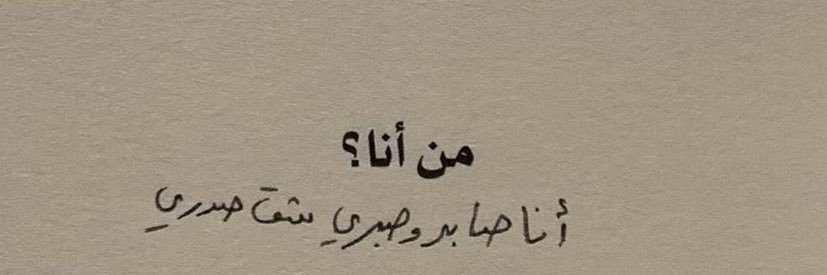 من أنا؟
أنا صابر وصبري شق صدري